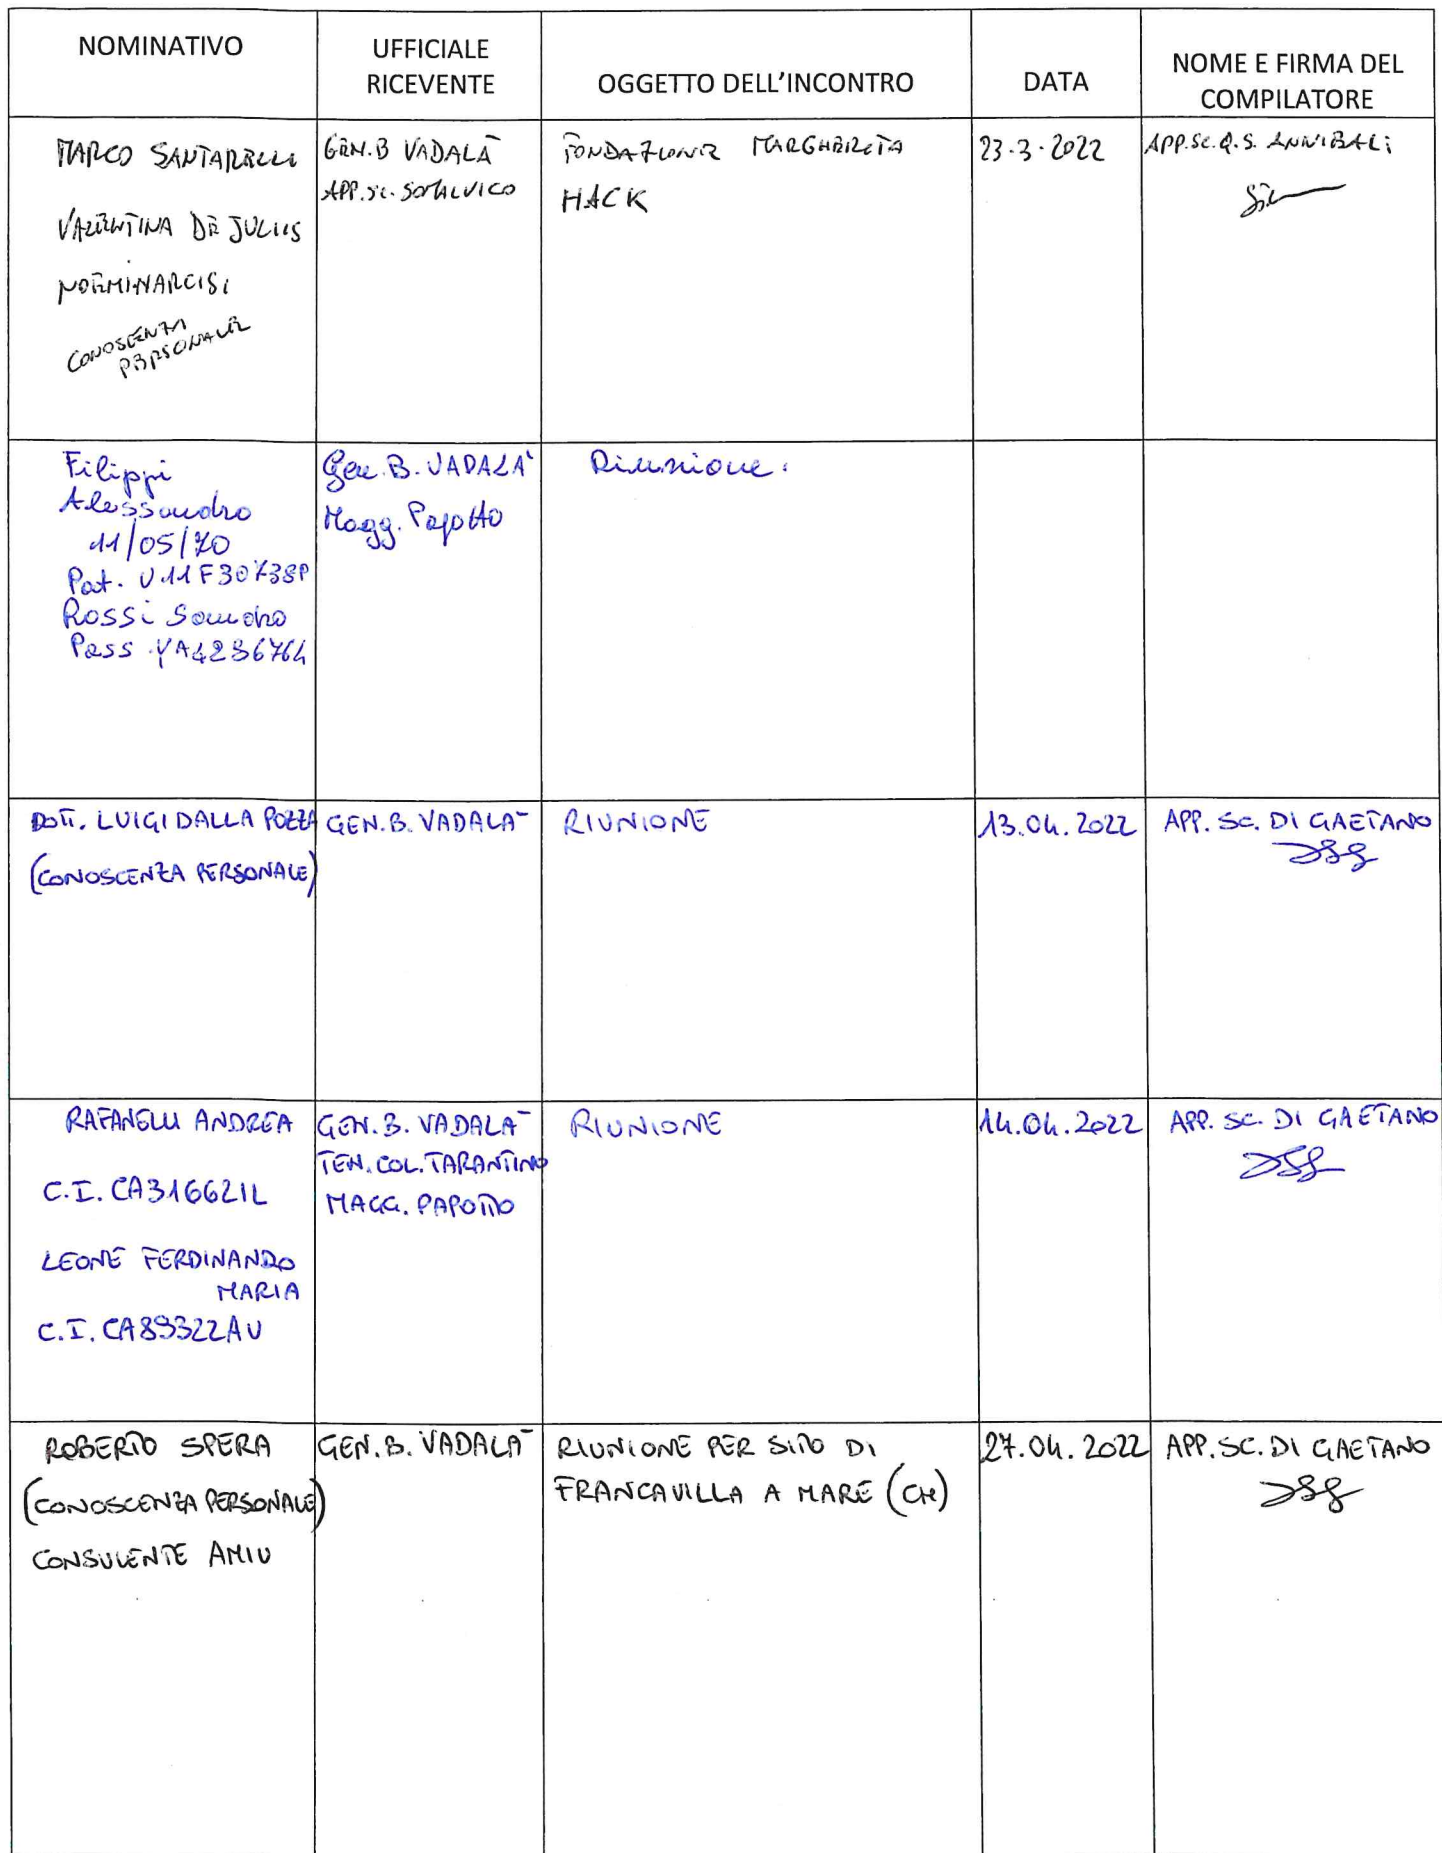 NOMINATIVO
UFFICIALE
RICEVENTE
OGGETTO DELL'INCONTRO
DATA
NOME E FIRMA DEL
COMPILATORE
MARCO SANTARELLI
VALENTINA DE JULIIS
CONOSCENZA
PERSONALE
GEN.B VADALÀ
APP.SC.
FONDAZIONE MARGHERITA
HACK
23-3-2022
APP.SC.Q.S. ANNIBALI
Filippi
Alessandro
11/05/70
Pat. U11F30738P
Rossi Sandro
Pass YA4236764
Gen. B. VADALA'
Magg. Papotto
Riunione.
DOTT. LUIGI DALLA POZZA
(CONOSCENZA PERSONALE)
GEN.B. VADALA'
RIUNIONE
13.04.2022
APP. SC. DI GAETANO
RAFANELLI ANDREA
C.I. CA31662IL
LEONE FERDINANDO
MARIA
C.I. CA89322AU
GEN. B. VADALA'
TEN. COL. TARANTINO
MAGG. PAPOTTO
RIUNIONE
14.04.2022
APP. SC. DI GAETANO
ROBERTO SPERA
(CONOSCENZA PERSONALE)
CONSULENTE AMIU
GEN. B. VADALA'
RIUNIONE PER SITO DI
FRANCAVILLA A MARE (CH)
27.04.2022
APP. SC. DI GAETANO